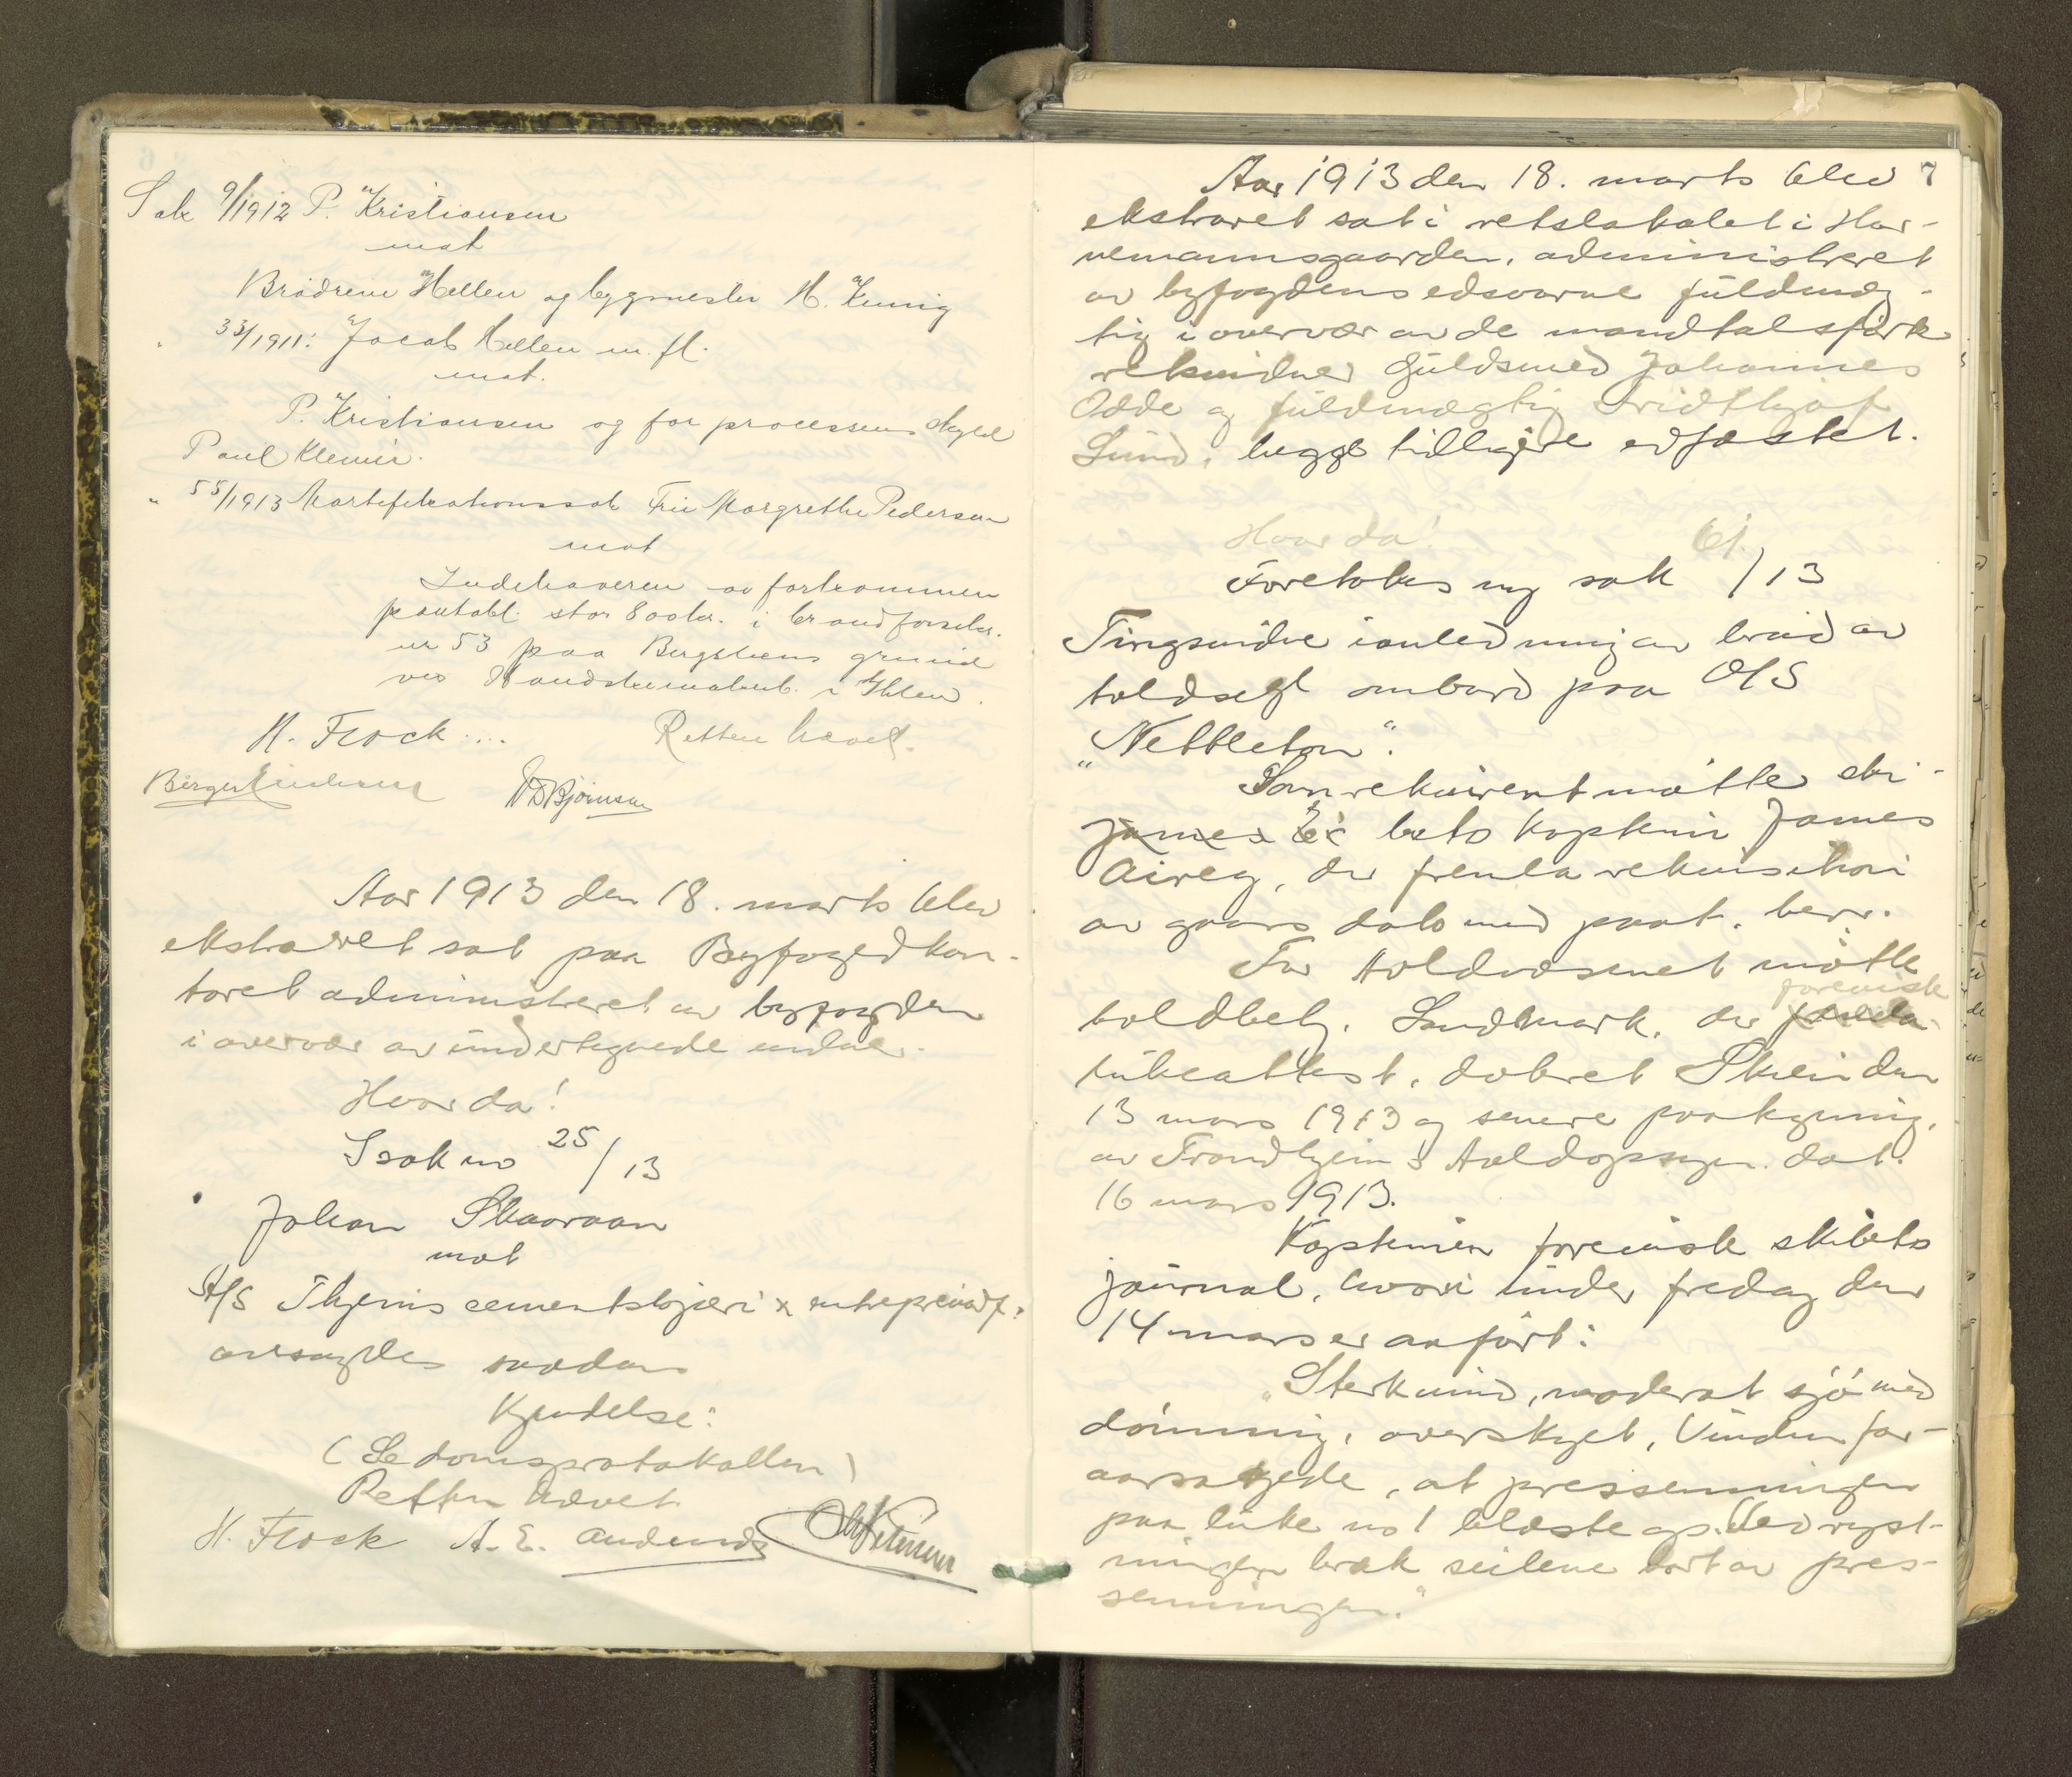 Sak 9/1912 P. Kristiansen
mot
Brødrene Hellen og bygmester H. Kunig
" 33/1911: Jacob Hellen m. fl.
mot.
P. Kristiansen og for processens skyld
Paul Klemir.
" 55/1913 Mortifikationssak Fru Margrethe Pedersen
mot
Indehaveren av forkommen
pantobl. stor 800 kr. i brandforsikr.
nr 53 paa Bergsliens grund
ved i Ihlen.
H. Flock .... Retten hævet.
Birger V. D. Bjørnson
Aar 1913 den 18. marts blev
ekstraret sat paa Byfogedkon-
toret administreret av byfogden
i overvær av undertegnede vidner.
Hvorda!
I sak no 25/13
Johan Skaarvan
mot
A/S Thjems cementstøperi & entreprenørf.
avsagdes saadan
Kjendelse:
(Se domsprotokollen)
Retten hævet
H. Flock A. E. Ole Petersen
Aar 1913 den 18. marts blev 7
ekstraret sat i retslokalet i Hor-
nemannsgaarden, administreret
av byfogdens edsvorne fuldmæg-
tig i overvær av de mandtalsførte
retsvidner Guldsmed Johannes
Odde og fuldmægtig Fridthjof
Lund, begge tidligere edfæstet.
Hvorda!
Foretokes ny sak 61./13
Tingsvidne i anledning av brud av
toldsegl ombord paa D/S
"Nettleton".
Som rekvirent møtte ski-
James bets kaptein James
Airey, der fremla rekvisition
av gaars dato med paat. ber.
For toldvæsenet møtte
toldbetj. Landmark, der fremla foreviste
lukeattest, dateret Skien den
13 mars 1913 og senere paategning
av Trondhjems Toldopsyn dat.
16 mars 1913.
Kapteinen foreviste skibets
journal, hvori under fredag den
14 mars er anført:
"Sterk vind, moderat sjø med
dønning, overskyet, Vinden for-
aarsagede, at presenningen
paa luke no 1 blæste op. Ved ryst-
ningen brak seilene bort av pres-
senningen."